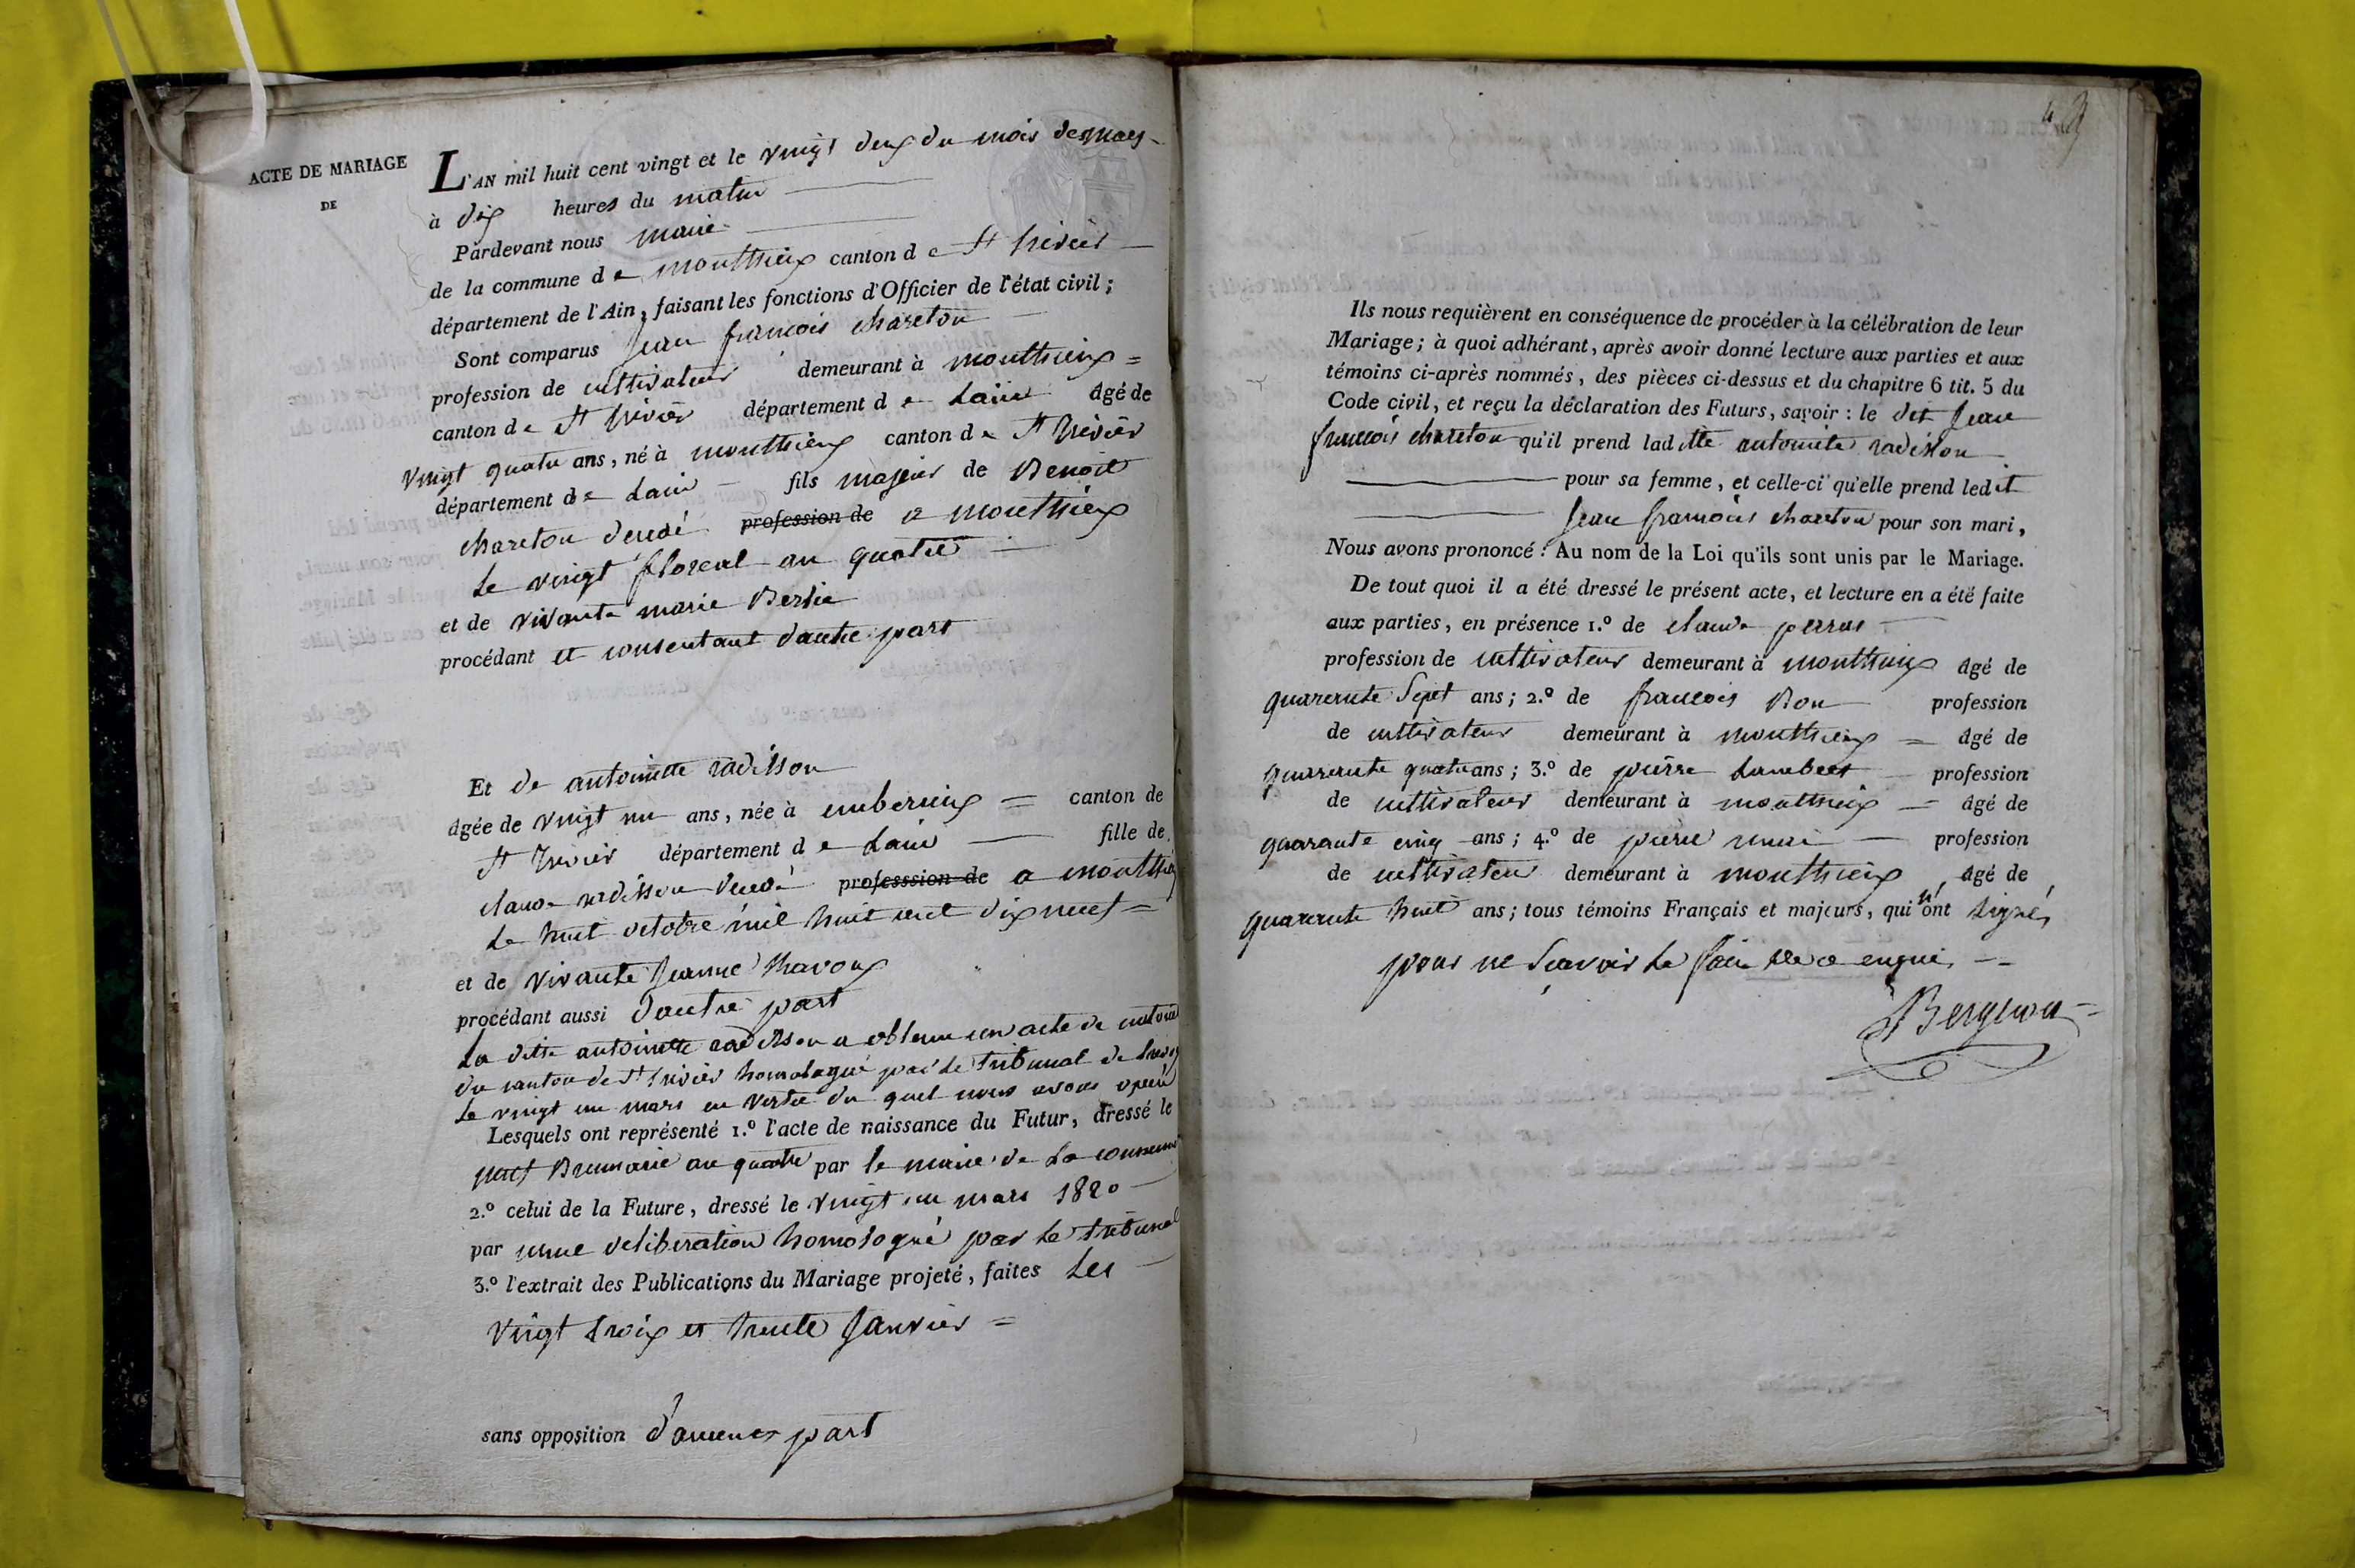 ACTE DE MARIAGE
DE
L'AN mil huit cent vingt et le vingt deux du mois de mars
à dix heures du matin
Pardevant nous maire
de la commune de monthieux canton de St trivier
département de l'Ain, faisant les fonctions d'Officier de l'état civil ;
Sont comparus Jean francois chareton
profession de cultivateur demeurant à monthieux =
canton de St trivier département de Lain âgé de
vingt quatre ans, né à monthieux canton de St trivier
département de Lain fils majeur de Benoit
chareton decedé profession de a monthieux
le vingt floreal an quatre
et de vivante marie
procédant et consentant dautre part
Et de antoinette radisson
âgée de vingt un ans, née à emberieux = canton de
St trivier département de Lain fille de
claude radisson decedé professsion de a monthieux
Le huit octobre mil huit cent dix neuf =
et de vivante Jeanne
procédant aussi dautre part
La ditte antoinette radisson a obtenu un acte de
du canton de St trivier homologué par le tribunal de
Le vingt un mars en vertu du quel nous avons operé
Lesquels ont représenté 1.º l'acte de naissance du Futur, dressé le
neuf Brumaire an quatre par le maire de La commune
2.º celui de la Future, dressé le vingt un mars 1820
par une deliberation homologué par le tribunal
3.º l'extrait des Publications du Mariage projeté, faites Les
vingt troix et trente Janvier =
sans opposition d'aucunes part
4
Ils nous requièrent en conséquence de procéder à la célébration de leur
Mariage ; à quoi adhérant, après avoir donné lecture aux parties et aux
témoins ci-après nommés, des pièces ci-dessus et du chapitre 6 tit. 5 du
Code civil, et reçu la déclaration des Futurs, savoir : le dit Jean
francois chareton qu'il prend laditte antoinete radisson
pour sa femme, et celle-ci qu'elle prend ledit
Jean francois chareton pour son mari,
Nous avons prononcé : Au nom de la Loi qu'ils sont unis par le Mariage.
De tout quoi il a été dressé le présent acte, et lecture en a été faite
aux parties, en présence 1.º de claude perras
profession de cultivateur demeurant à monthieux âgé de
quarente Sept ans ; 2.º de francois Bon profession
de cultivateur demeurant à monthieux = âgé de
quarente quatre ans ; 3.º de pierre Lambert profession
de cultivateur demeurant à monthieux = âgé de
quarante cinq ans ; 4.º de pierre profession
de cultivateur demeurant à monthieux âgé de
quarente huit ans ; tous témoins Français et majeurs, qui n'ont signés
pour ne scavoir le faire de ce enquis